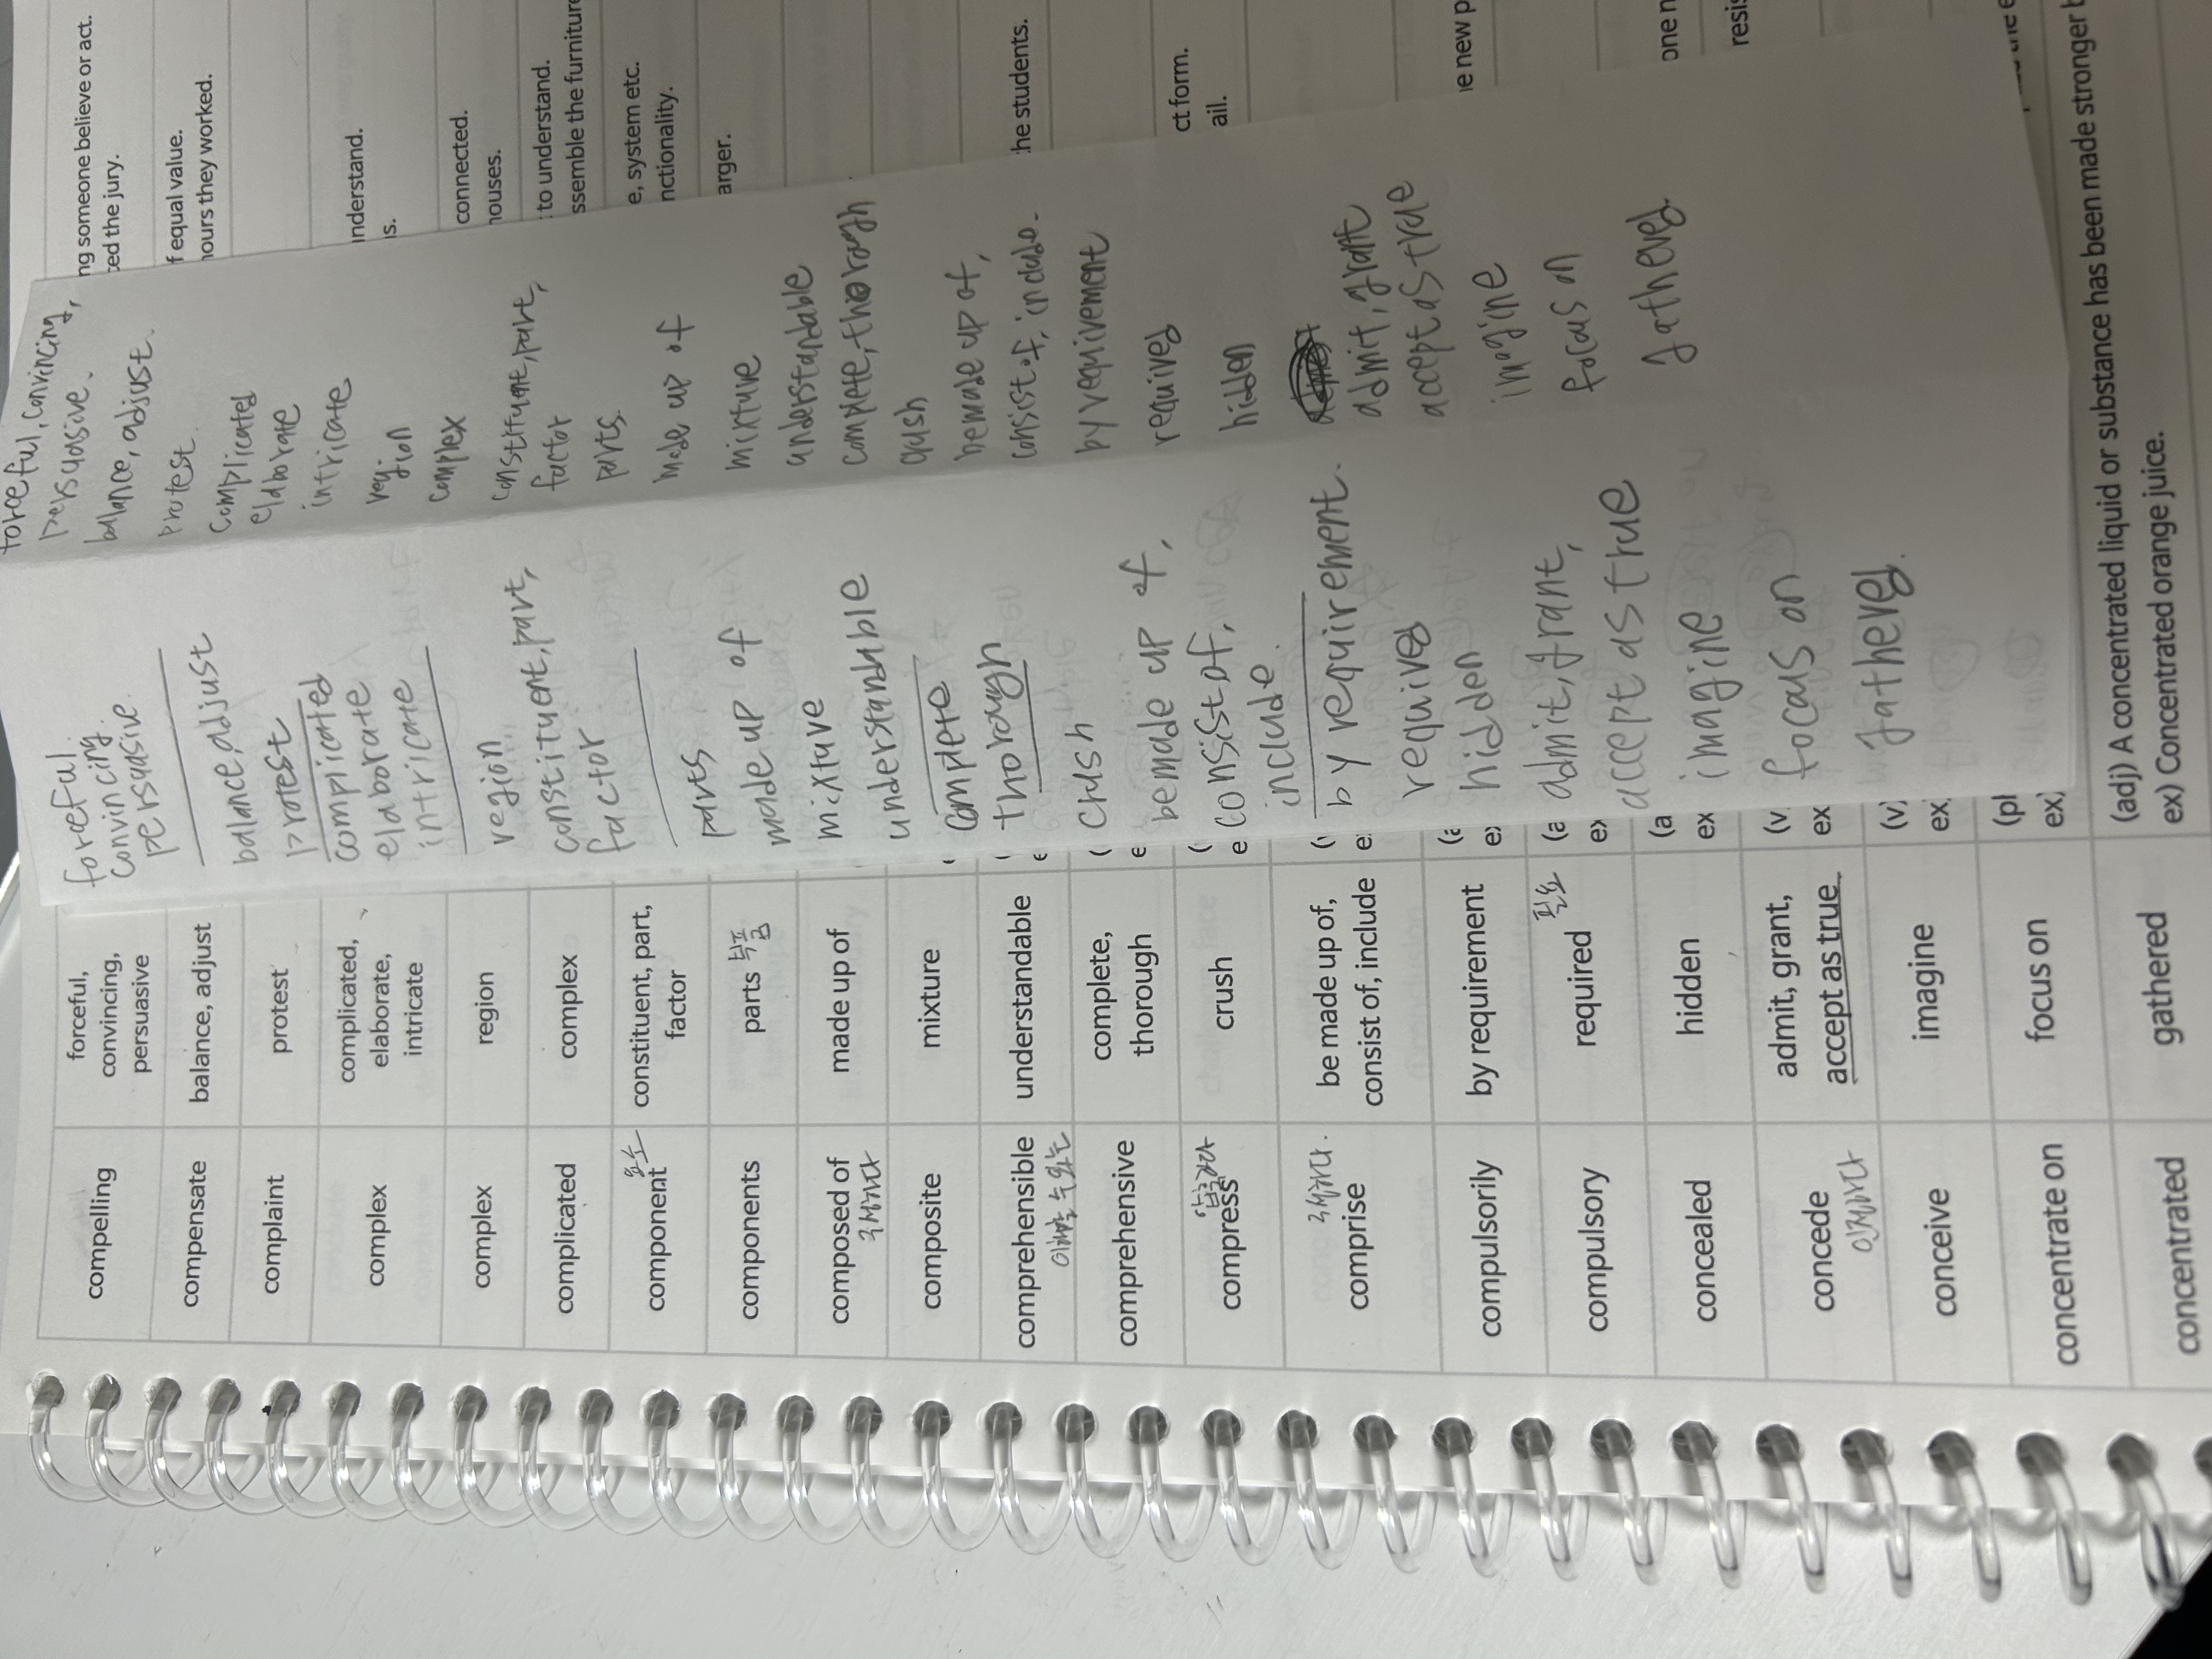 compelling
forceful,
convincing,
persuasive
compensate
balance, adjust
complaint
protest
complex
complicated,
elaborate,
intricate
complex
region
complicated
complex
component
요소
constituent, part,
factor
components
parts 부품
composed of
구성하다
made up of
composite
mixture
comprehensible
이해할 수 있는
understandable
comprehensive
complete,
thorough
compress
압축하다
crush
comprise
구성하다.
be made up of,
consist of, include
compulsorily
by requirement
compulsory
required
필요
concealed
hidden
concede
인정하다
admit, grant,
accept as true
conceive
imagine
concentrate on
focus on
concentrated
gathered
(adj) A concentrated liquid or substance has been made stronger b
ex) Concentrated orange juice.
forceful.
convincing.
persuasive.
balance, adjust
protest
complicated
elaborate
intricate
region
constituent, part,
factor
parts
made up of
mixture
understandable
complete
thorough
crush
be made up of,
consist of,
include.
by requirement.
required
hidden
admit, grant,
accept as true
imagine
focus on
gathered.
forceful, convincing,
persuasive.
balance, adjust.
protest.
complicated
elaborate
intricate
region
complex
constituent, part,
factor
parts.
made up of
mixture
understandable
complete, thorough
crush
be made up of,
consist of, include.
by requirement
required
hidden
admit, grant
accept as true
imagine
focus on
gathered.
ng someone believe or act.
ced the jury.
f equal value.
hours they worked.
nderstand.
s.
connected.
houses.
to understand.
ssemble the furniture
e, system etc.
nctionality.
arger.
he students.
ct form.
ail.
e new p
one n
resis